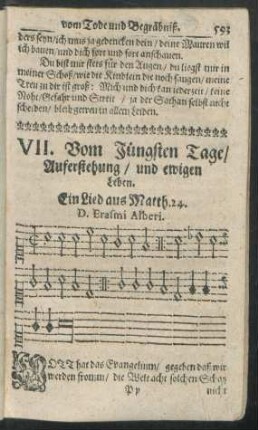 vom Tode und Begräbniß. 593
ders seyn/ ich mus ja gedencken dein/ deine Mauren wil
ich bauen/ und dich fort und fort anschauen.
Du bist mir stets für den Augen/ du liegst mir in
meiner Schoß/ wie die Kindlein die noch saugen/ meine
Treu zu dir ist groß: Mich und dich kan jederzeit/ keine
Noht/ Gefahr und Streit/ ja der Sathan selbst nicht
scheiden/ bleib getreu in allen Leiden.
VII. Vom Jüngsten Tage/
Auferstehung/ und ewigen
Leben.
Ein Lied aus Matth. 24.
D. Erasmi Alberi.
GOTT hat das Evangelium/ gegeben daß wir
werden fromm/ die Welt acht solchen Schatz
P p nicht